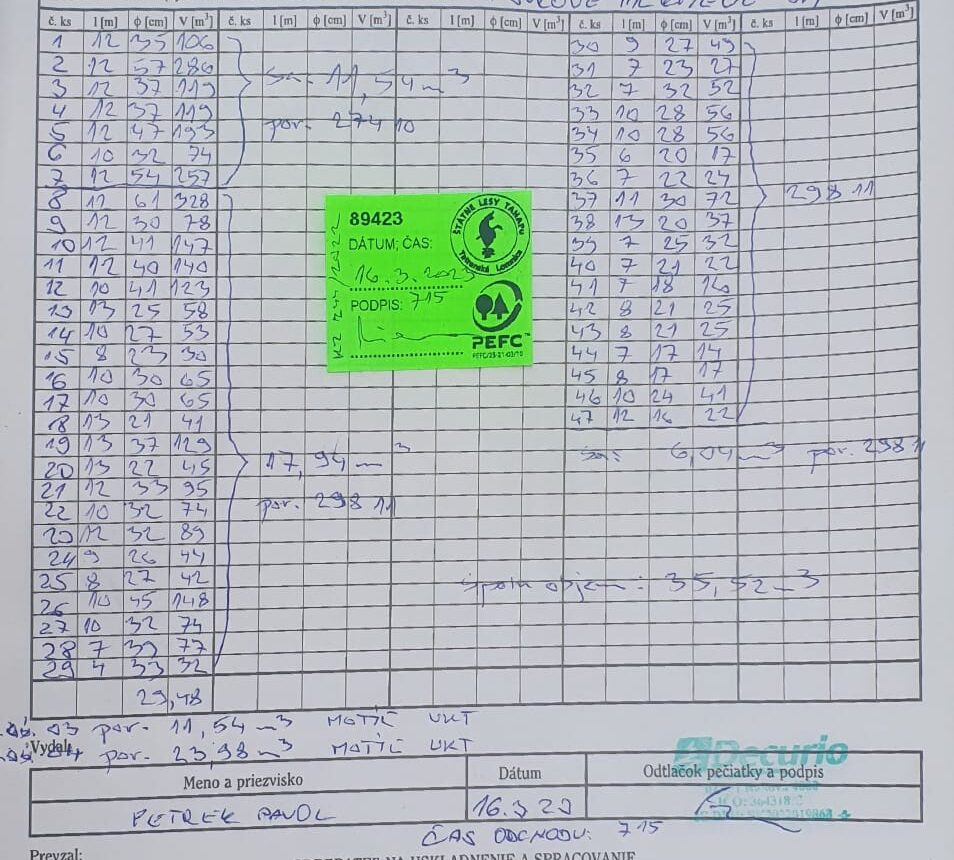 č. ks l [m] ϕ [cm] V [m³] č. ks l [m] ϕ [cm] V [m³] č. ks l [m] ϕ [cm] V [m³] č. ks l [m] ϕ [cm] V [m³] č. ks l [m] ϕ [cm] V [m³]
1 12 35 106 30 9 27 49
2 12 57 286 31 7 23 27
11,54 m³
3 12 37 119 32 7 32 52
4 12 37 119 33 10 28 56
por. 274 10
5 12 47 193 34 10 28 56
6 10 32 74 35 6 20 17
7 12 54 257 36 7 22 24
8 12 61 328 37 11 30 72 298 11
9 12 30 78 38 13 20 37
10 12 41 147 39 7 25 32
11 12 40 140 40 7 21 22
12 10 41 123 41 7 18 16
13 13 25 58 42 8 21 25
14 10 27 53 43 8 21 25
15 8 23 30 44 7 17 14
16 10 30 65 45 8 17 17
17 10 30 65 46 10 24 41
18 13 21 41 47 12 16 22
19 13 37 129
6,04 m³ por. 298 11
20 13 22 45 17,94 m³
21 12 33 95
22 10 32 74 por. 298 11
23 12 32 89
24 9 26 44
25 8 27 42 Spolu objem: 35,52 m³
26 10 45 148
27 10 32 74
28 7 39 77
29 4 33 32
29,48
89423
ŠTÁTNE LESY TANAPu
Tatranská Lomnica
DÁTUM; ČAS:
16.3.2023
PODPIS: 715
PEFC
03 por. 11,54 m³ MOTÍČ UKT
Vydal:
04 por. 23,98 m³ MOTÍČ UKT
Decurio
Meno a priezvisko Dátum Odtlačok pečiatky a podpis
PETREK PAVOL 16.3 23
ČAS ODCHODU: 715
Prevzal:
NA USKLADNENIE A SPRACOVANIE